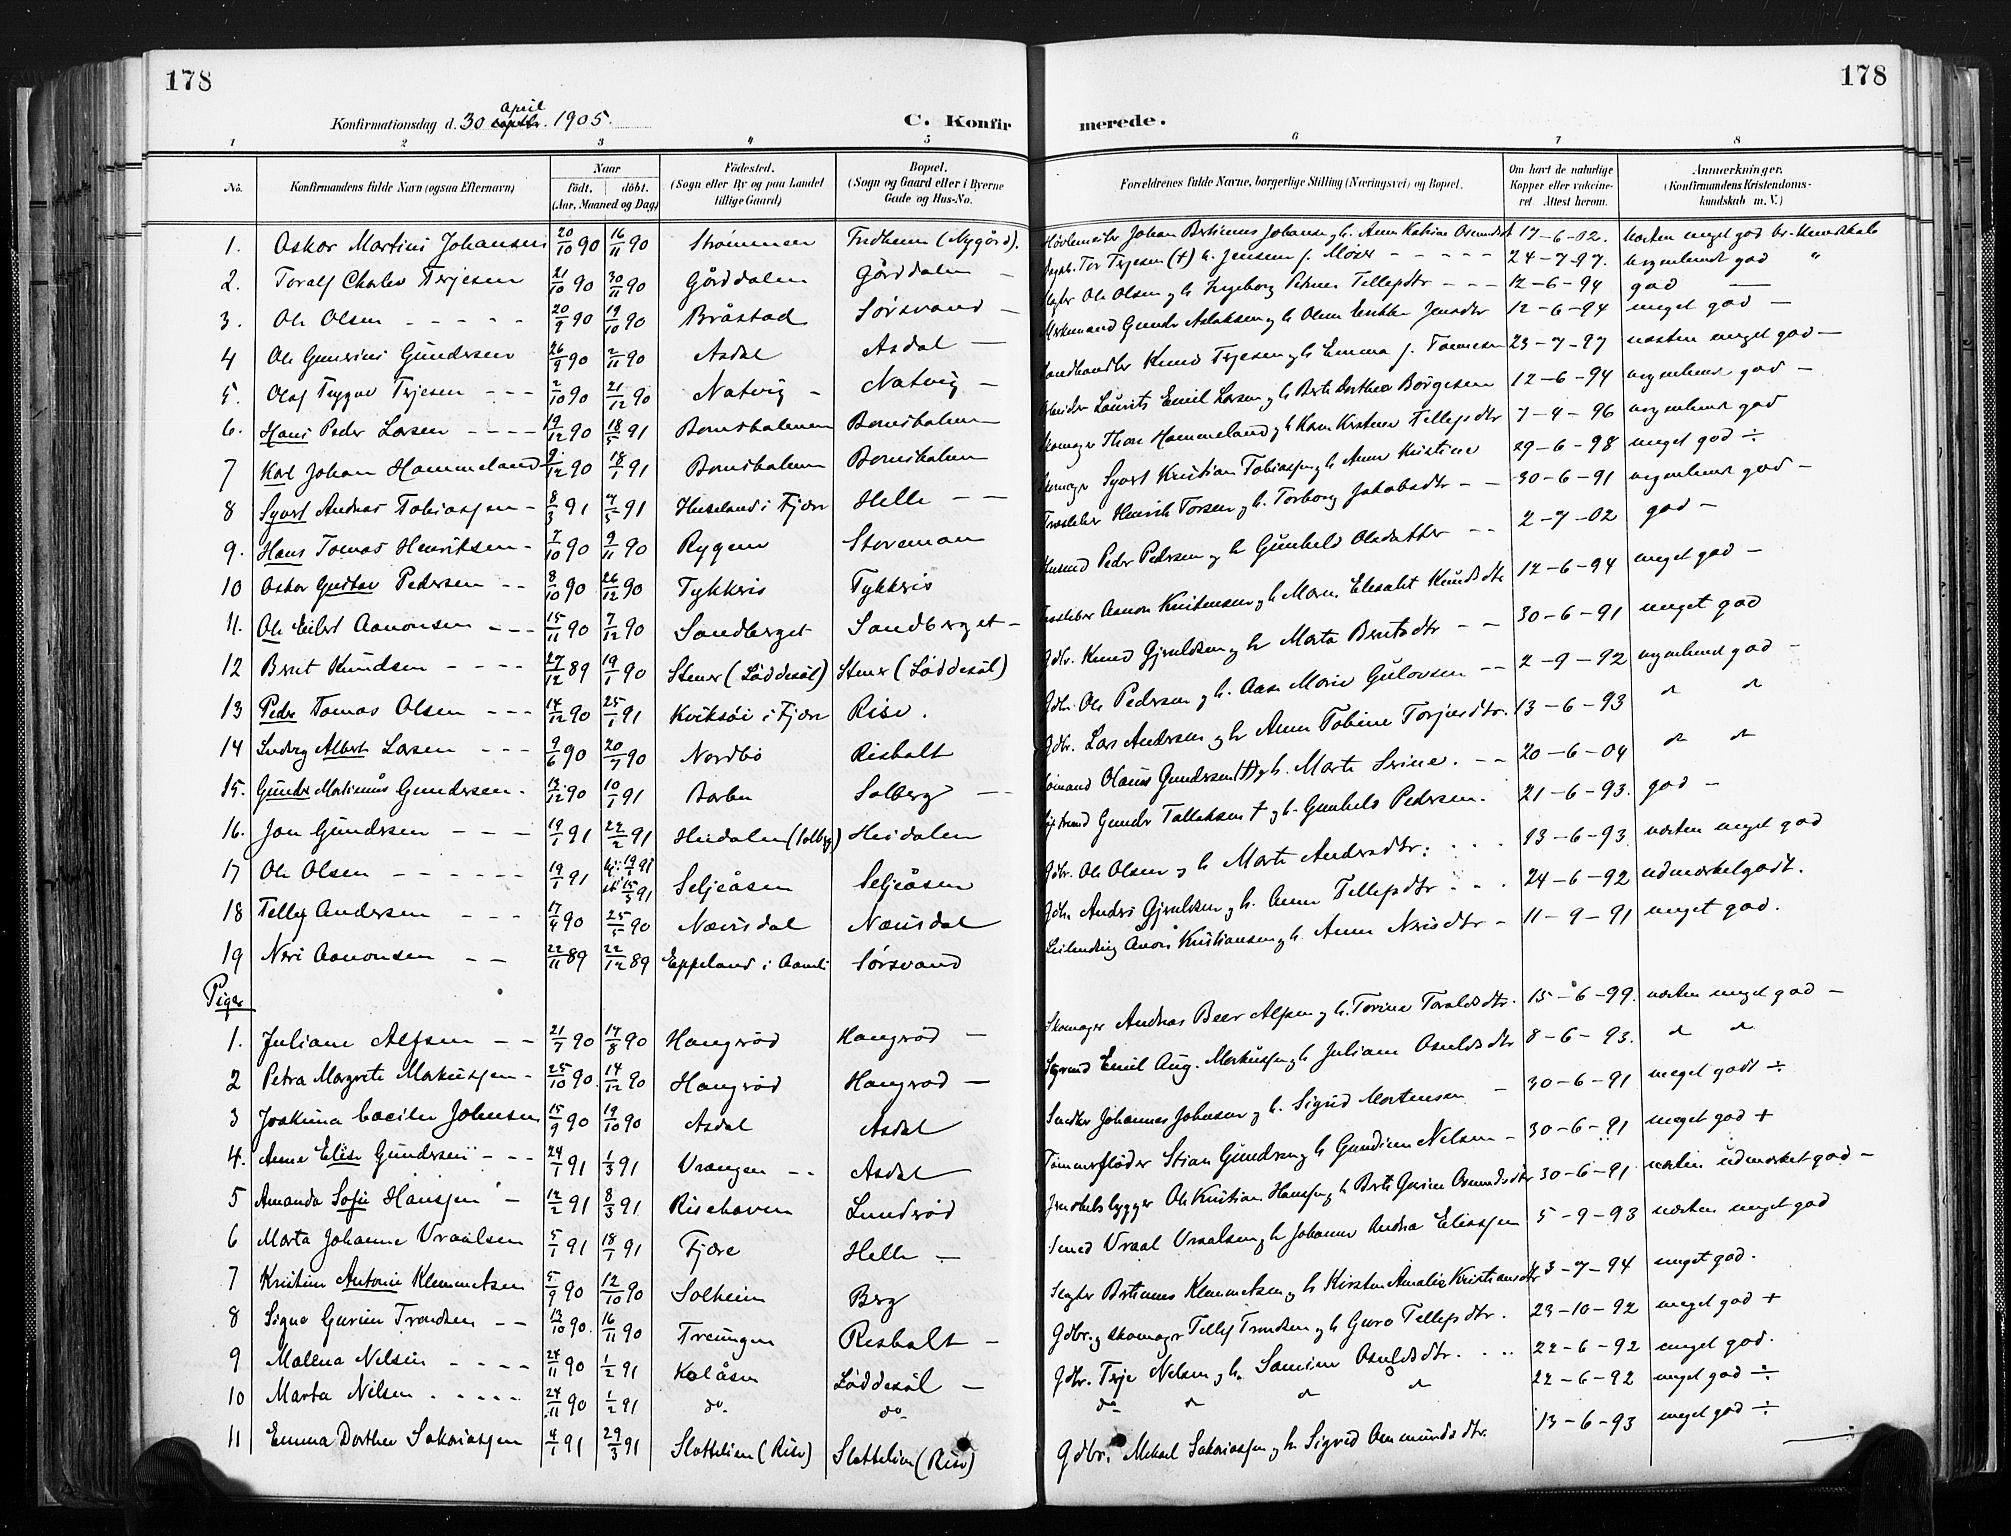 178
178
Konfirmationsdag d. 30 april 1905.
C. Konfirmerede.
1 2 3 4 5 6 7 8
No. Konfirmandens fulde Navn (ogsaa Efternavn) Naar født. døbt. (Aar, Maaned og Dag) Fødested. (Sogn eller By og paa Landet tillige Gaard) Bopæl. (Sogn og Gaard eller i Byerne Gade og Hus-No. Forældrenes fulde Navne, borgerlige Stilling (Næringsvei) og Bopæl. Om havt de naturlige Kopper eller vaccineret. Attest herom. Anmærkninger. (Konfirmandens Kristendomskundskab m. V.)
1. Oskar Martin Johansen 20/10 90 16/11 90 Strømmen Fredheim (Nygård). Johan Bertinius Johansen og h. Anne Katrine 17-6-02. næsten meget god kr. kundskab
2. Toralf Charles Terjesen 21/10 90 30/11 90 Gårddalen Gårddalen – Tor Terjesen (†) h. Jensen f. Moier – – – 24-7-97. nogenlunde god "
3. Ole Olsen – – – 20/9 90 19/10 90 Bråstad Sørsvand – Ole Olsen og h. Ingeborg Petrine Tellefsdtr – – – 12-6-94 god —
4 Ole Gunerius Gundersen 26/9 90 2/11 90 Asdal Asdal — Gunder Aslaksen og h. Olene 12-6-94 meget god –
5. Olaf Trygve Terjesen – – – 2/10 90 21/12 90 Natvig – Natvig – Landhandler Knud Terjesen og h. Emma f. Tønnesen 23-7-97 næsten meget god –
6. Hans Peder Larsen – – – – 19/12 90 18/5 91 Bomsholmen Bomsholmen Arbeider Laurits Emil Larsen og h. Berte Dorthea Børgesen 12-6-94 nogenlunde god –
7 Karl Johan Hammeland 9/12 90 18/1 91 Bomsholmen Bomsholmen Skomager Thor Hammeland og h. Karen Kirstine Tellefsdtr 7-4-96 nogenlunde god
8 Syvert Andreas Tobiassen – 8/3 91 /5 91 Huseland i Fjære Helle – – Syvert Kristian Tobiassen og h. Anne Kristine 29-6-98 meget god ÷
9. Hans Tomas Henriksen – 7/10 90 9/11 90 Rygene Storemoen Henrik Torsen og h. Torborg Jakobsdtr – – 30-6-91 nogenlunde god –
10 Oskar Gustav Pedersen – – 8/10 90 26/12 90 Tykkris Tykkris Husmd Peder Pedersen og h. Gunhild Olesdatter – – 2-7-02 god –
11. Ole Eilert Aanonsen – – – 15/11 90 7/12 90 Sandberget Sandberget – Aanon Kristensen og h. Maren Elisabet Knudsdtr 12-6-94 meget god –
12 Bernt Knudsen – – – – 27/12 89 19/1 90 Stener (Løddesøl) Stener (Løddesøl) Gdbr. Knud Gjeruldsen og h. Marta Berntsdtr – – 30-6-91 meget god
13 Peder Tomas Olsen – – – 14/12 90 25/1 91 Kviksøi i Fjære Rise. Gdbr. Ole Pedersen og h. Aase Marie Gulovsen – – 2-9-92 nogenlunde god –
14 Ludvig Albert Larsen – – – 9/6 90 20/7 90 Nordbø Risholt Gdbr. Lars Andersen og h. Anne Tobine Torjusdtr. 13-6-93 " "
15. Gunder Martinius Gundersen. 13/12 90 10/1 91 Barbu Solberg – – Sømand Olaus Gundersen (†) og h. Marte Serine. – – 20-6-04 " "
16. Jon Gundersen – – – 19/1 91 22/2 91 Heidalen (Solberg) Heidalen Gunder Tallaksen † og h. Gunhild Pedersen. 21-6-93. god –
17 Ole Olsen – – – – – 19/1 91 hj. 19/1 91 st. 15/3 91 Seljeåsen Seljeåsen Gdbr. Ole Olsen og h. Marte Andersdtr. . . . 13-6-93. næsten meget god
18 Tellef Andersen – – – 17/4 90 25/5 90 Nævisdal Nævisdal Gdbr. Anders Gjeruldsen og h. Anne Tellefsdtr – . . 24-6-92 udmærket godt.
19 Neri Aanonsen – – 22/11 89 22/12 89 Eppeland i Aamli Sørsvand Leilending Anon Kristiansen og h. Anne Nerisdtr – 11-9-91 meget god.
Piger
1. Juliane Alfsen – – 21/7 90 17/8 90 Hangrød Hangrød – Skomager Andreas Beer Alfsen og h. Torine Toraldsdtr. 15-6-99. næsten meget god –
2 Petra Margrete Markussen – 25/10 90. 14/12 90 Hangrød Hangrød – Emil Aug. Markussen og h. Juliane Osuldsdtr 8-6-93. " "
3 Joakima Cæcilie Johnsen 15/9 90 19/10 90 Asdal Asdal Snedker Johannes Johnsen og h. Sigrid Mortensen – 30-6-91 meget godt ÷
4. Anne Elise Gundersen – – – 24/1 91 1/3 91 Vrangen – – Asdal Tømmerfløder Stian Gundersen og h. Gundine Nelsen – 30-6-91 meget god +
5 Amanda Sofie Hanssen – 12/2 91 8/3 91 Risehaven Lundrød Ole Kristian Hanssen og h. Berte Gurine Osmundsdtr 30-6-91 næsten udmærket god –
6 Marta Johanne Vraalsen 5/1 91 18/1 91 Fjære Helle – Smed Vraal Vraalsen og h. Johanne Andrea Eliassen 5-9-93 næsten meget god
7 Kristine Antonie Klemmetsen 5/9 90 12/10 90 Solheim Berg Bertinius Klemmetsen og h. Kirsten Amalie Kristiansdtr 3-7-94 meget god.
8 Signe Gurine Trondsen – – 13/10 90. 16/11 90 Treungen Risholt – Gdbr. og skomager Tellef Trondsen og h. Guro Tellefsdtr. 23-10-92 meget god +
9 Mallena Nelsen – – – – 24/11 90 1/2 91 Kolåsen Løddesøl – Gdbr. Terje Nelsen og h. Samine Osuldsdtr. . . . 22-6-92 meget god.
10 Marta Nilsen . – – – – 24/11 90 1/2 91 do. do. do " " " 22-6-92 meget god ÷
11 Emma Dorthea Sakariassen 4/1 91 29/3 91 Slottelien (Rise) Slottelien (Rise) Gdbr. Mikael Sakariassen og h. Sigrid Ommundsdtr. 13-6-93 meget god ÷